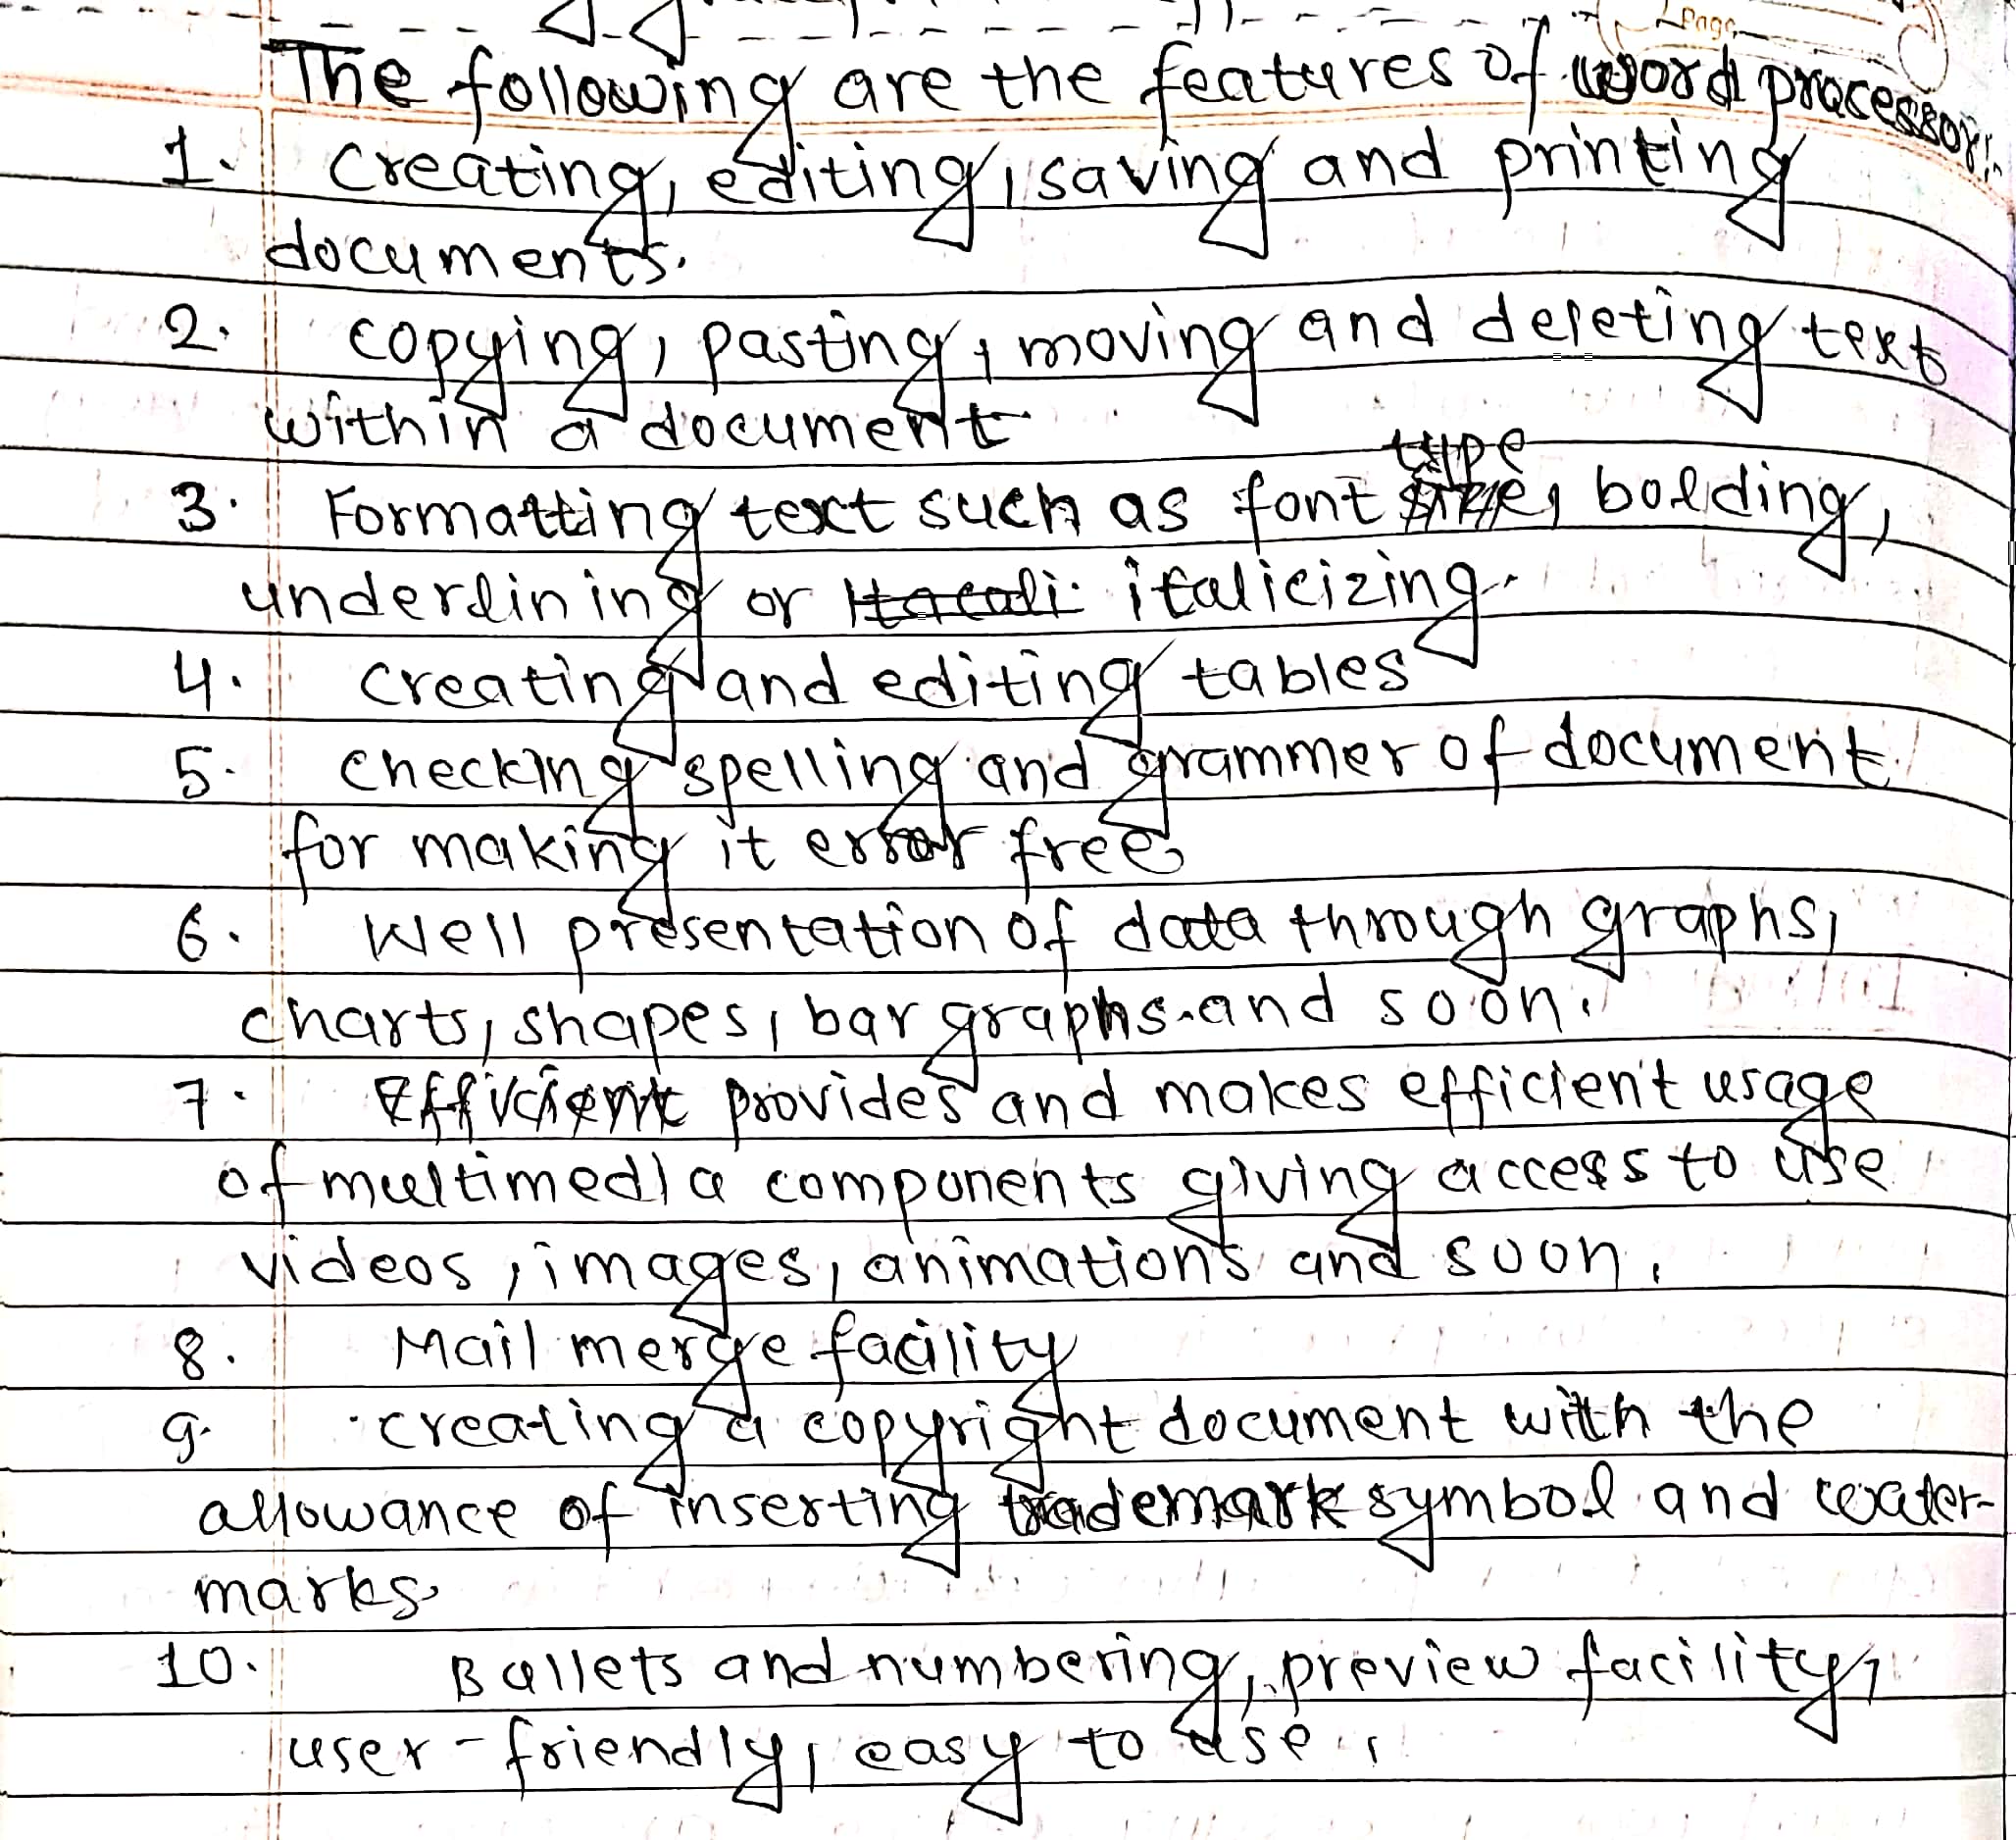 Page
The following are the features of word processor:
1. Creating, editing, saving and printing
documents.
2. Copying, pasting, moving and deleting text
within a document
type
3. Formatting text such as font size, bolding,
underlining or Itacali italicizing.
4. Creating and editing tables
5. Checking spelling and grammer of document
for making it error free
6. Well presentation of data through graphs,
charts, shapes, bar graphs and soon.
7. Efficient provides and makes efficient usage
of multimedia components giving access to use
videos, images, animations and soon.
8. Mail merge facility
9. Creating a copyright document with the
allowance of inserting trademark symbol and water-
marks
10. Bullets and numbering, preview facility,
user-friendly, easy to use.